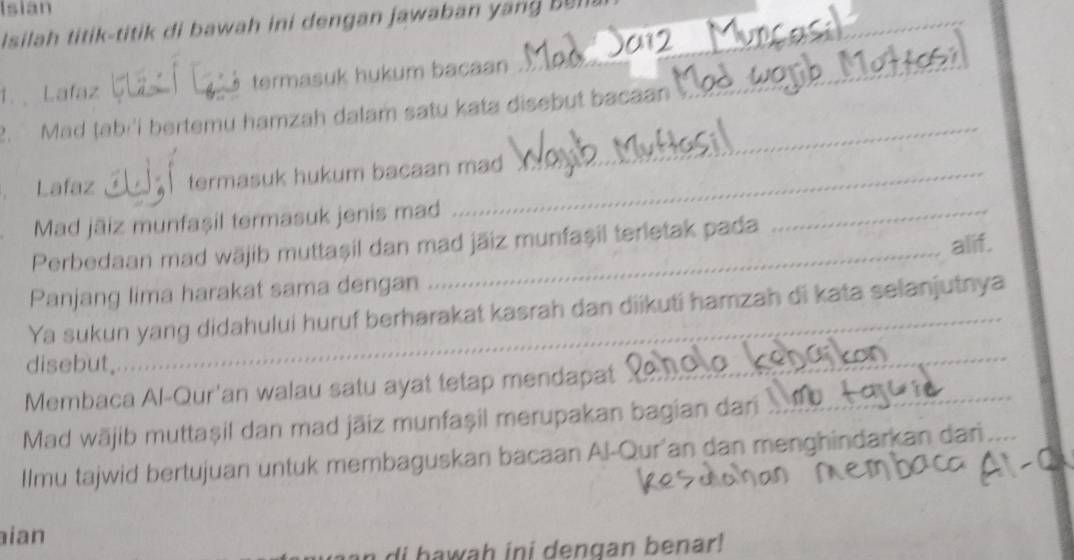 Isian
Isilah titik-titik di bawah ini dengan jawaban yang
1. Lafaz termasuk hukum bacaan Mad Jaiz Munfasil
2. Mad ṭabi'i bertemu hamzah dalam satu kata disebut bacaan Mad wajib Muttasil
Lafaz أُولٰئِكَ termasuk hukum bacaan mad Wajib Muttasil
Mad jāiz munfaṣil termasuk jenis mad
Perbedaan mad wājib muttaṣil dan mad jāiz munfaṣil terletak pada
Panjang lima harakat sama dengan alif.
Ya sukun yang didahului huruf berharakat kasrah dan diikuti hamzah di kata selanjutnya
disebut,
Membaca Al-Qur'an walau satu ayat tetap mendapat Pahala kebaikan
Mad wājib muttaṣil dan mad jāiz munfaṣil merupakan bagian dari Ilmu tajwid
Ilmu tajwid bertujuan untuk membaguskan bacaan Al-Qur'an dan menghindarkan dari ....
kesalahan membaca Al-Q
aian
di bawah ini dengan benar!